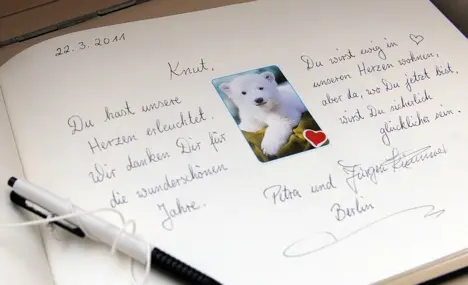 22.3.2011
Knut,
Du hast unsere
Herzen erleuchtet.
Wir danken Dir für
die wunderschönen
Jahre.
Du wirst ewig in ♡
unseren Herzen wohnen,
aber da, wo Du jetzt bist,
wirst Du sicherlich
glücklich sein.
Petra und Jürgen
Berlin